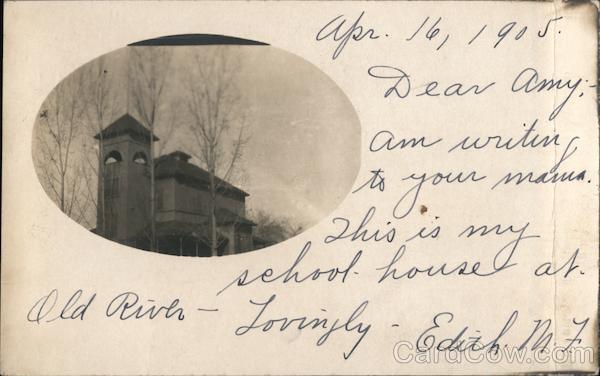 Apr. 16, 1905.
Dear Amy;-
Am writing
to your mama.
This is my
school-house at
Old River - Lovingly - Edith. M. F.
CardCow.com